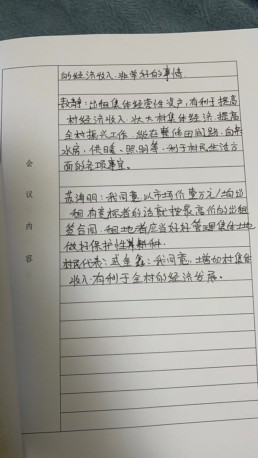 的经济收入.办学好的事情.
敖静:出租集体经营性资产,有利于提高
村经济收入.壮大村集体经济.提高
全村振兴工作.能在整修田间路,自来
水房,供暖、照明等,利于村民生活方
面的各项事宜。
会议内容
苏海明:我同意以市场价壹万元/垧出
租.有竞标者的话就按最高价的出租
签合同.租地者应当好好管理集体土地
做好保护性耕种.
村民代表:武金鑫:我同意,增加村集体
收入.有利于全村的经济发展。